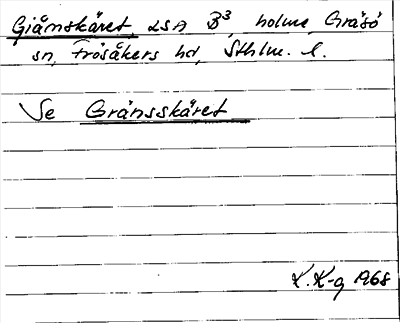 Giånskäret LSA B³, holme, Gräsö
sn, Frösåkers hd, Sthlm. l.
Se Gränsskäret
K. K-g 1968